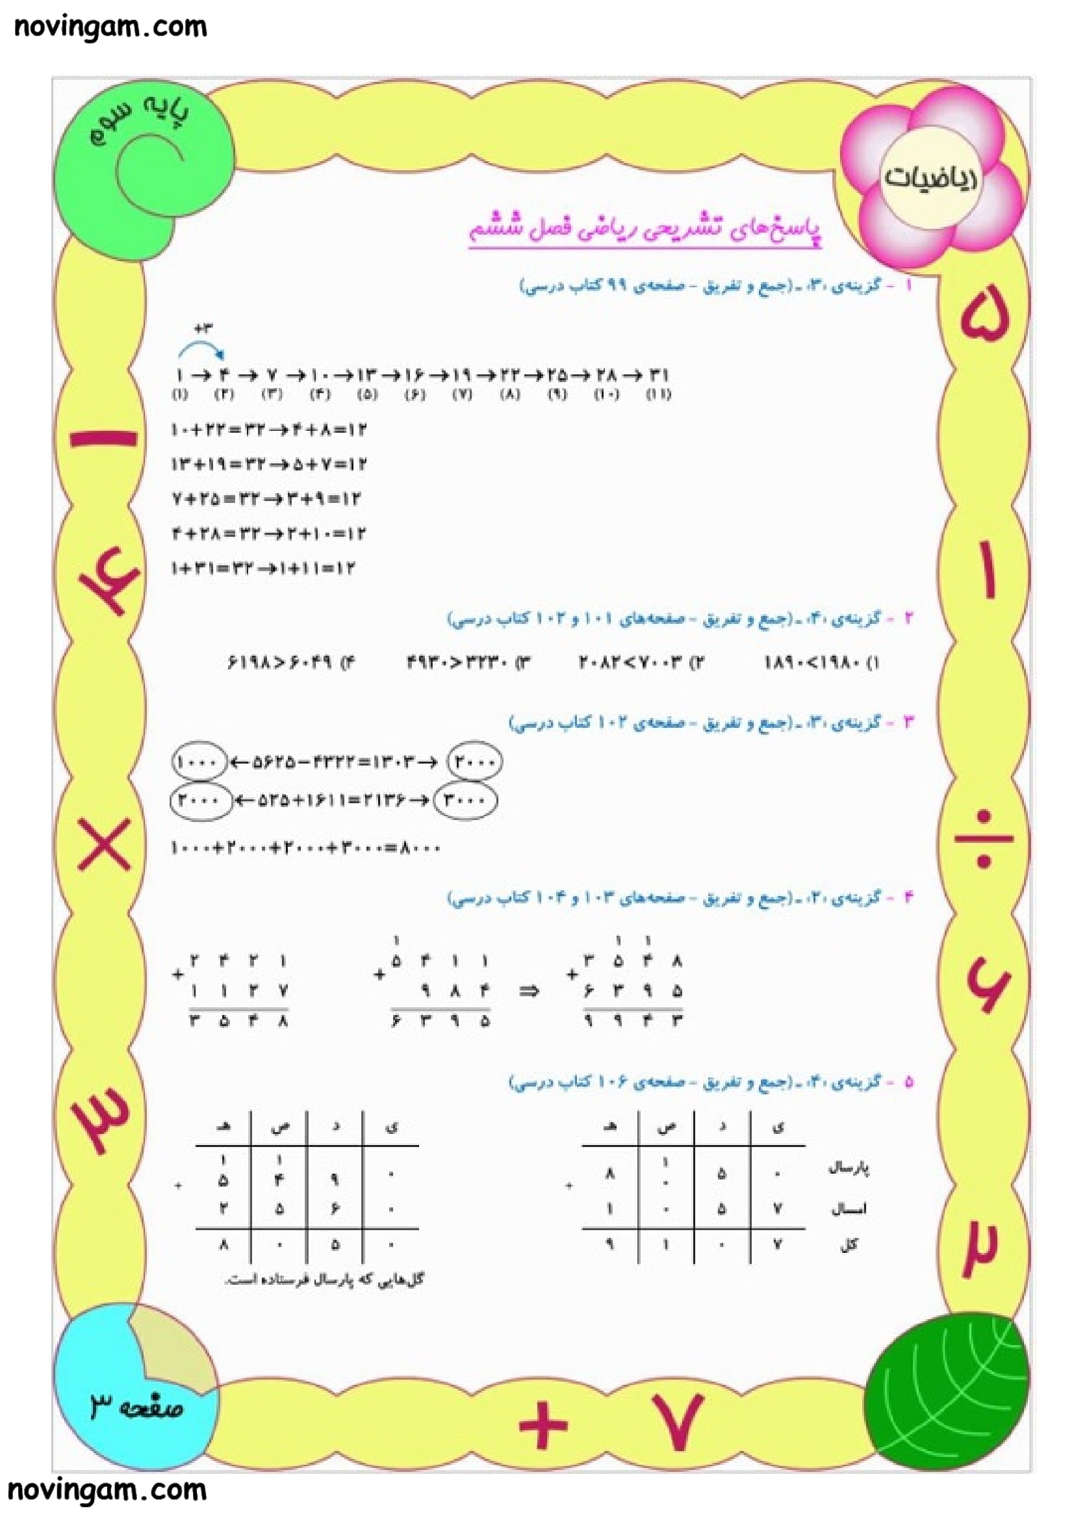 novingam.com
پایه سوم
ریاضیات
پاسخ‌های تشریحی ریاضی فصل ششم
۱ - گزینه‌ی «۳» ـ (جمع و تفریق - صفحه‌ی ۹۹ کتاب درسی)
+۳
۱ → ۴ → ۷ → ۱۰ → ۱۳ → ۱۶ → ۱۹ → ۲۲ → ۲۵ → ۲۸ → ۳۱
(۱) (۲) (۳) (۴) (۵) (۶) (۷) (۸) (۹) (۱۰) (۱۱)
۱۰+۲۲=۳۲→۴+۸=۱۲
۱۳+۱۹=۳۲→۵+۷=۱۲
۷+۲۵=۳۲→۳+۹=۱۲
۴+۲۸=۳۲→۲+۱۰=۱۲
۱+۳۱=۳۲→۱+۱۱=۱۲
۲ - گزینه‌ی «۴» ـ (جمع و تفریق - صفحه‌های ۱۰۱ و ۱۰۲ کتاب درسی)
۱) ۱۸۹۰<۱۹۸۰ ۲) ۲۰۸۲<۷۰۰۳ ۳) ۴۹۳۰>۳۲۳۰ ۴) ۶۱۹۸>۶۰۴۹
۳ - گزینه‌ی «۳» ـ (جمع و تفریق - صفحه‌ی ۱۰۲ کتاب درسی)
۱۰۰۰ ←۵۶۲۵−۴۳۲۲=۱۳۰۳→ ۲۰۰۰
۲۰۰۰ ←۵۲۵+۱۶۱۱=۲۱۳۶→ ۳۰۰۰
۱۰۰۰+۲۰۰۰+۲۰۰۰+۳۰۰۰=۸۰۰۰
۴ - گزینه‌ی «۲» ـ (جمع و تفریق - صفحه‌های ۱۰۳ و ۱۰۴ کتاب درسی)
۱ ۱ ۱
+ ۲ ۴ ۲ ۱ + ۵ ۴ ۱ ۱ + ۳ ۵ ۴ ۸
۱ ۱ ۲ ۷ ۹ ۸ ۴ ⇒ ۶ ۳ ۹ ۵
۳ ۵ ۴ ۸ ۶ ۳ ۹ ۵ ۹ ۹ ۴ ۳
۵ - گزینه‌ی «۴» ـ (جمع و تفریق - صفحه‌ی ۱۰۶ کتاب درسی)
هـ ص د ی هـ ص د ی
۱ ۱ ۱
+ ۵ ۴ ۹ ۰ + ۸ ۰ ۵ ۰ پارسال
۲ ۵ ۶ ۰ ۱ ۰ ۵ ۷ امسال
۸ ۰ ۵ ۰ ۹ ۱ ۰ ۷ کل
گل‌هایی که پارسال فرستاده است.
۵
۱
÷
۶
۲
۱
۴
×
۳
+ ۷
صفحه ۳
novingam.com